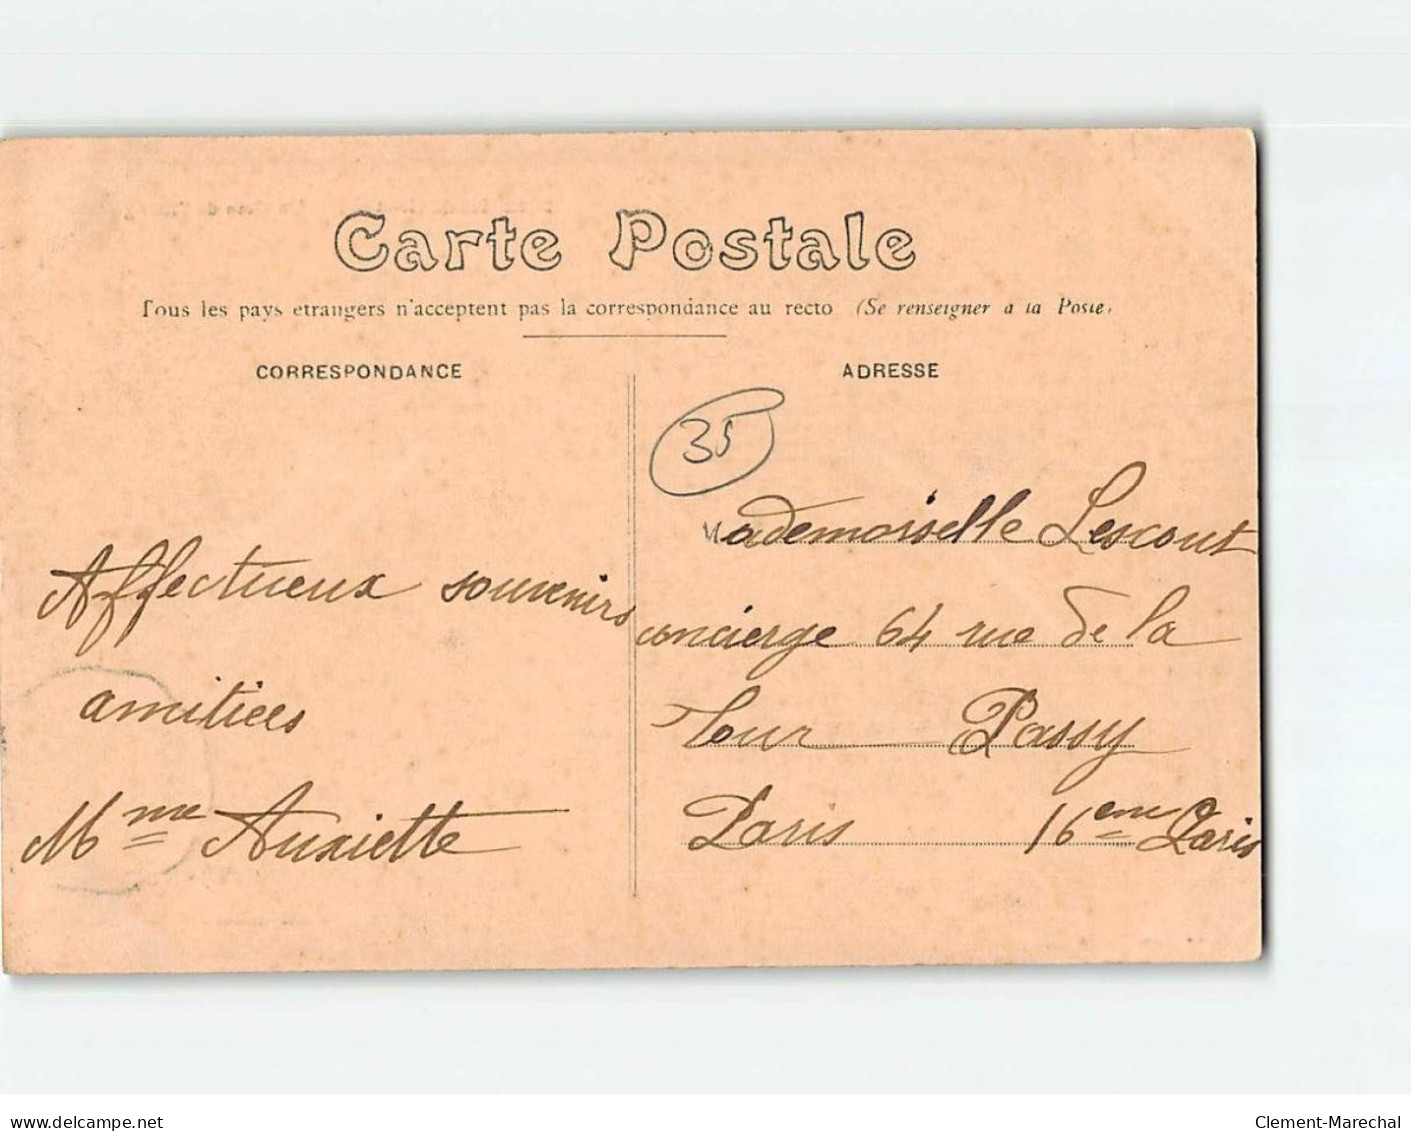 Carte Postale
Tous les pays etrangers n'acceptent pas la correspondance au recto (Se renseigner a la Poste)
CORRESPONDANCE
ADRESSE
35
Affectueux souvenirs
amitiees
Mme Auxiette
Mademoiselle Lescout
concierge 64 rue de la
tour Passy
Paris 16eme Paris
delcampe.net
Clement-Marechal